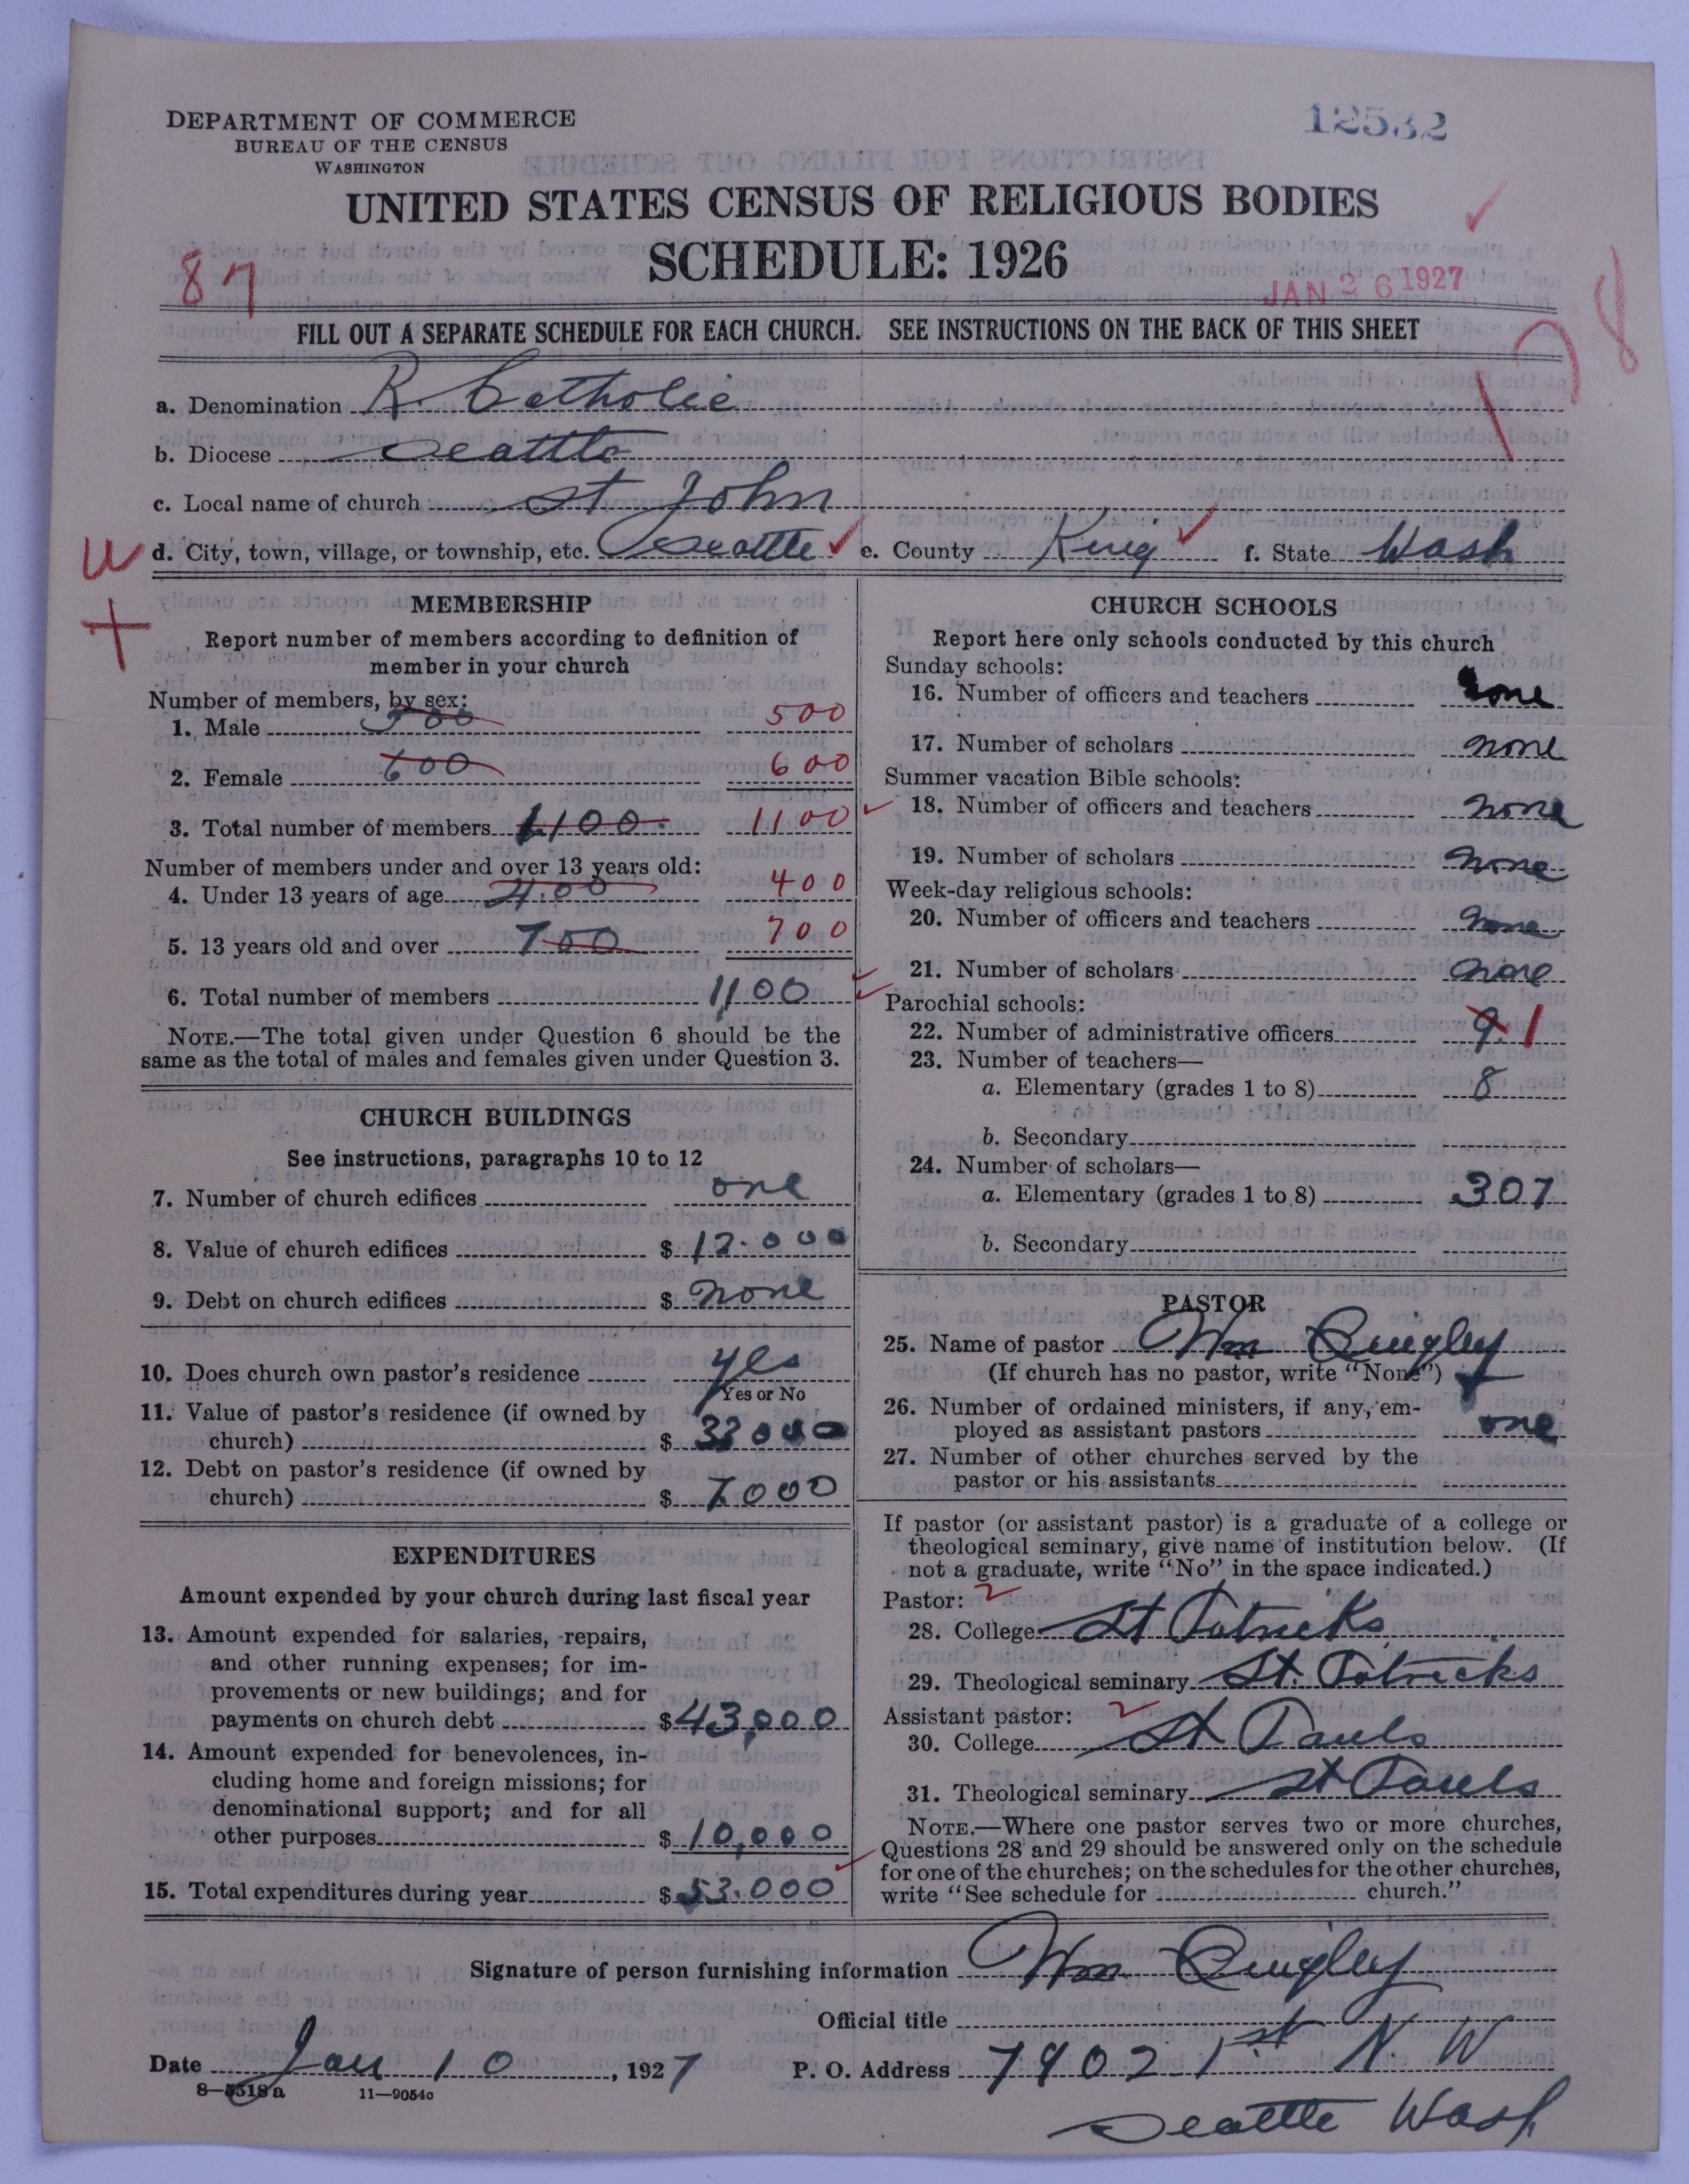 DEPARTMENT OF COMMERCE
BUREAU OF THE CENSUS
WASHINGTON
12532
UNITED STATES CENSUS OF RELIGIOUS BODIES
SCHEDULE: 1926
87
JAN 26 1927
FILL OUT A SEPARATE SCHEDULE FOR EACH CHURCH. SEE INSTRUCTIONS ON THE BACK OF THIS SHEET
a. Denomination R. Catholic
b. Diocese Seattle
c. Local name of church St John
d. City, town, village, or township, etc. Seattle e. County King f. State Wash
MEMBERSHIP
Report number of members according to definition of
member in your church
Number of members, by sex:
1. Male 500 500
2. Female 600 600
3. Total number of members 1100. 1100
Number of members under and over 13 years old:
4. Under 13 years of age 400 400
5. 13 years old and over 700 700
6. Total number of members 1100
NOTE.—The total given under Question 6 should be the
same as the total of males and females given under Question 3.
CHURCH BUILDINGS
See instructions, paragraphs 10 to 12
7. Number of church edifices one
8. Value of church edifices $ 12.000
9. Debt on church edifices $ none
10. Does church own pastor's residence yes
Yes or No
11. Value of pastor's residence (if owned by
church) $ 33000
12. Debt on pastor's residence (if owned by
church) $ 7000
EXPENDITURES
Amount expended by your church during last fiscal year
13. Amount expended for salaries, repairs,
and other running expenses; for im-
provements or new buildings; and for
payments on church debt $ 43,000
14. Amount expended for benevolences, in-
cluding home and foreign missions; for
denominational support; and for all
other purposes $ 10,000
15. Total expenditures during year $ 53.000
CHURCH SCHOOLS
Report here only schools conducted by this church
Sunday schools:
16. Number of officers and teachers none
17. Number of scholars none
Summer vacation Bible schools:
18. Number of officers and teachers none
19. Number of scholars none
Week-day religious schools:
20. Number of officers and teachers none
21. Number of scholars none
Parochial schools:
22. Number of administrative officers 9 1
23. Number of teachers—
a. Elementary (grades 1 to 8) 8
b. Secondary
24. Number of scholars—
a. Elementary (grades 1 to 8) 307
b. Secondary
PASTOR
25. Name of pastor Wm Quigley
(If church has no pastor, write "None")
26. Number of ordained ministers, if any, em-
ployed as assistant pastors one
27. Number of other churches served by the
pastor or his assistants
If pastor (or assistant pastor) is a graduate of a college or
theological seminary, give name of institution below. (If
not a graduate, write "No" in the space indicated.)
Pastor: 2
28. College St Patricks
29. Theological seminary St. Patricks
Assistant pastor: 2
30. College St Pauls
31. Theological seminary St Pauls
NOTE.—Where one pastor serves two or more churches,
Questions 28 and 29 should be answered only on the schedule
for one of the churches; on the schedules for the other churches,
write "See schedule for church."
Signature of person furnishing information Wm Quigley
Official title
Date Jan 10, 1927 P. O. Address 7902 1st N. W
8—5518a 11—9054o
Seattle Wash